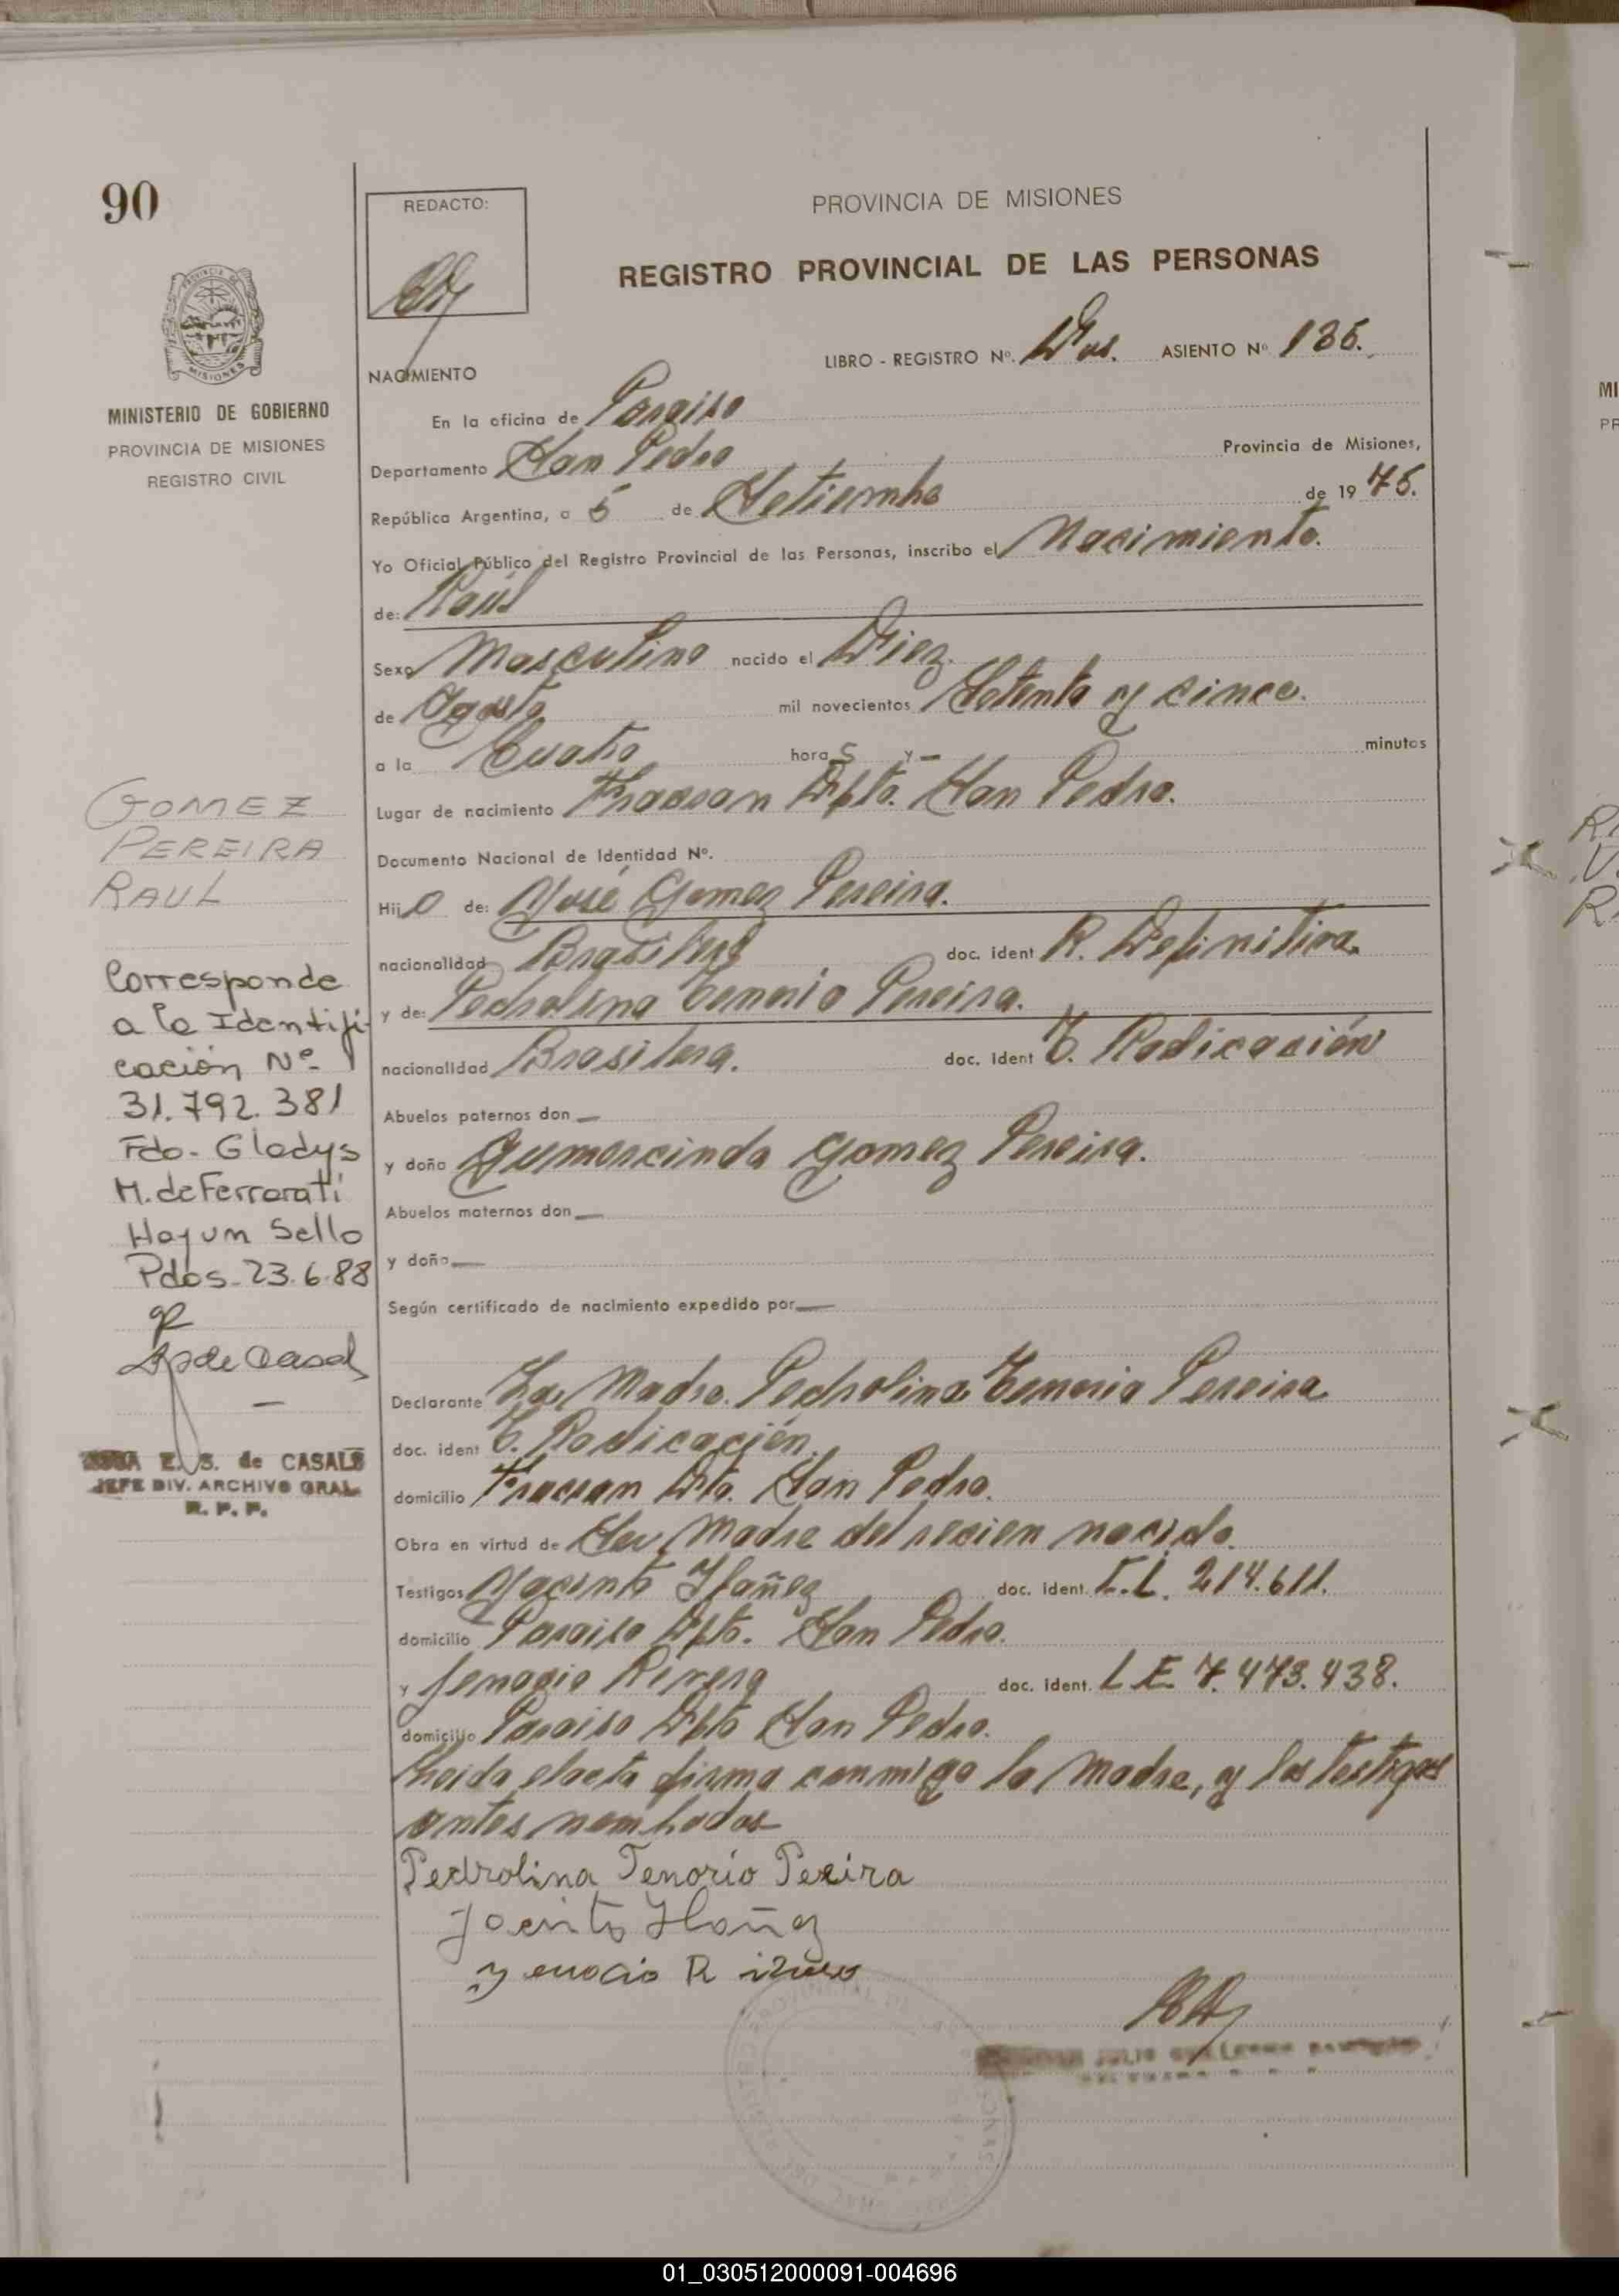 90
REDACTO:
PROVINCIA DE MISIONES
REGISTRO PROVINCIAL DE LAS PERSONAS
LIBRO - REGISTRO Nº. Dos. ASIENTO Nº 135.
NACIMIENTO
MINISTERIO DE GOBIERNO
PROVINCIA DE MISIONES
REGISTRO CIVIL
En la oficina de Paraiso
Departamento San Pedro Provincia de Misiones,
República Argentina, a 5 de Setiembre de 19 75.
Yo Oficial Público del Registro Provincial de las Personas, inscribo el Nacimiento.
de: Raúl
Sexo Masculino nacido el Diez.
de Agosto mil novecientos Setenta y cinco.
a la Cuatro horas y — minutos
Lugar de nacimiento Fracran Dpto. San Pedro.
Documento Nacional de Identidad Nº.
Hijo de: José Gomez Pereira.
nacionalidad doc. ident R. Definitiva.
y de: Pedrolina Tenorio Pereira.
nacionalidad Brasilera. doc. ident T. Radicación
Abuelos paternos don —
y doña Gumercinda Gomez Pereira.
Abuelos maternos don —
y doña —
Según certificado de nacimiento expedido por —
Declarante La Madre. Pedrolina Tenorio Pereira
doc. ident T. Radicación.
domicilio Fracran Dto. San Pedro.
Obra en virtud de Ser Madre del recien nacido.
Testigos Jacinto Ibañez doc. ident. 214.611.
domicilio Paraiso Dpto. San Pedro.
y Jenacio Rivero doc. ident. L E 7.473.438.
domicilio Paraiso Dpto San Pedro.
Leida el acta firma conmigo la Madre, y los testigos
antes nombados
Pedrolina Tenorio Pereira
Jacinto Ibañez
GOMEZ
PEREIRA
RAUL
Corresponde
a la Identifi-
cación Nº
31.792.381
Fdo. Gladys
M. de Ferrarati
Hay un Sello
Pdas. 23.6.88
E. S. de CASALS
JEFE DIV. ARCHIVO GRAL
R. P. P.
01_030512000091-004696